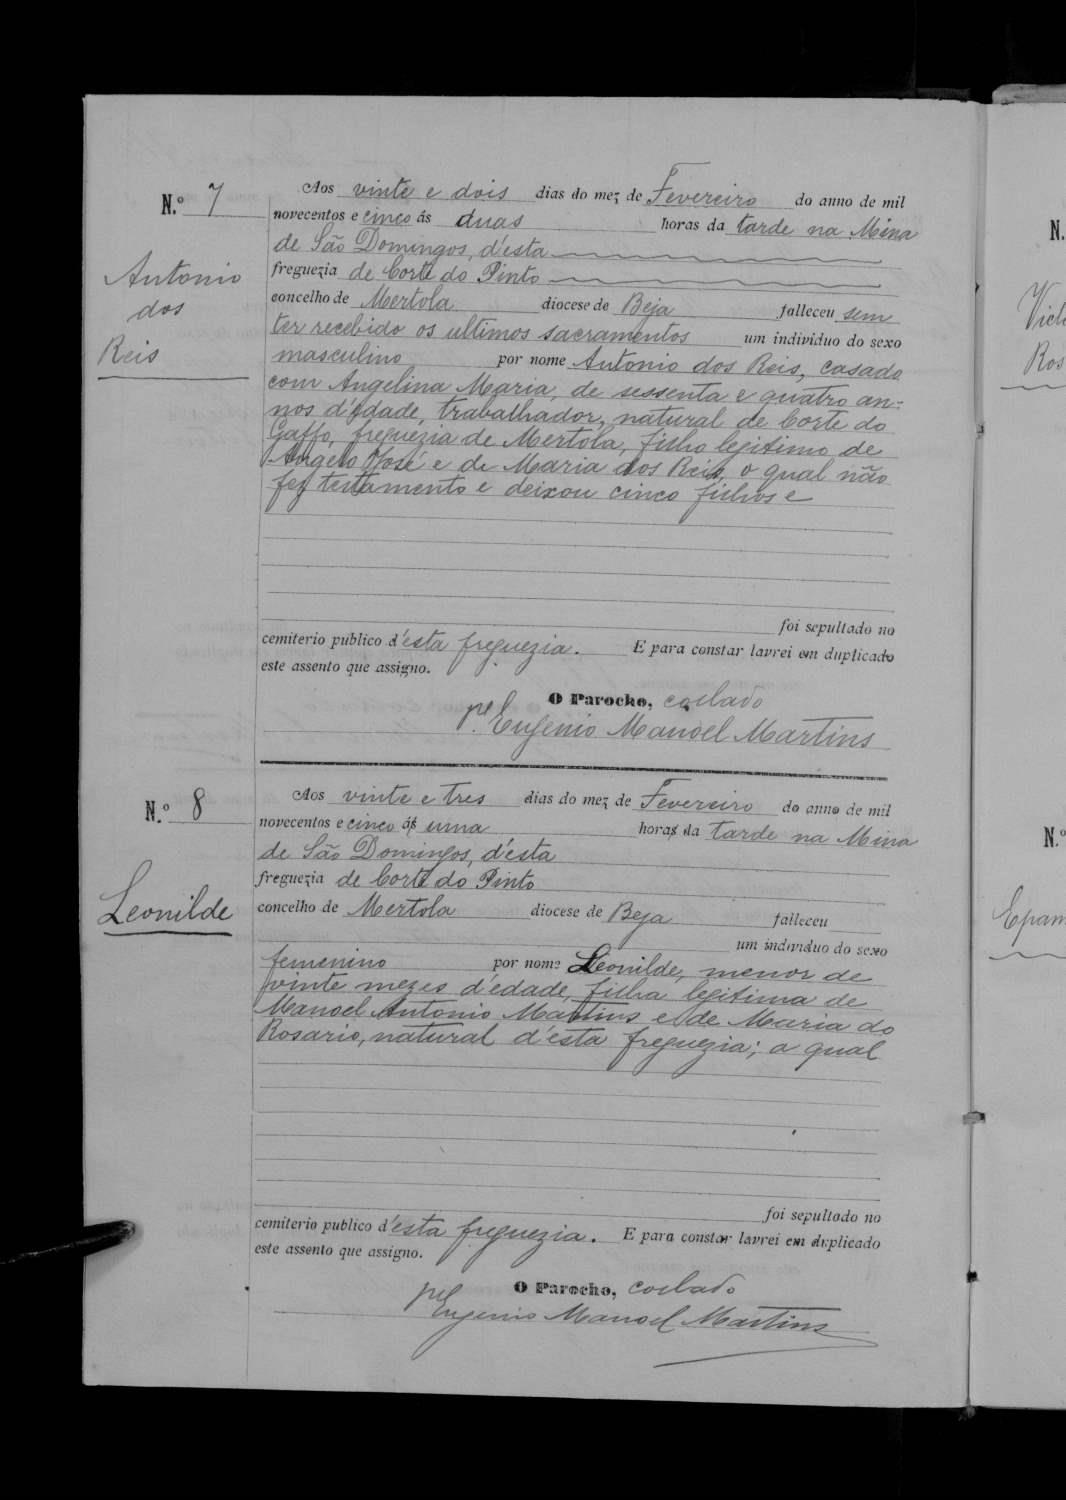 N.º 7
Antonio
dos
Reis
Aos vinte e dois dias do mez de Fevereiro do anno de mil
novecentos e cinco ás duas horas da tarde na Mina
de São Domingos, d'esta
freguezia de Corte do Pinto
concelho de Mertola diocese de Beja falleceu sem
ter recebido os ultimos sacramentos um individuo do sexo
masculino por nome Antonio dos Reis, casado
com Angelina Maria, de sessenta e quatro an-
nos d'edade, trabalhador, natural de Corte do
Gaffo, freguezia de Mertola, filho legitimo de
Angelo José e de Maria dos Reis, o qual não
fez testamento e deixou cinco filhos e
foi sepultado no
cemiterio publico d'esta freguezia. E para constar lavrei em duplicado
este assento que assigno.
O Parocho, collado
Eugenio Manoel Martins
N.º 8
Leonilde
Aos vinte e tres dias do mez de Fevereiro do anno de mil
novecentos e cinco ás uma horas da tarde na Mina
de São Domingos, d'esta
freguezia de Corte do Pinto
concelho de Mertola diocese de Beja falleceu
um individuo do sexo
femenino por nome Leonilde, menor de
vinte mezes d'edade, filha legitima de
Manoel Antonio Martins e de Maria do
Rosario, natural d'esta freguezia; a qual
foi sepultado no
cemiterio publico d'esta freguezia. E para constar lavrei em duplicado
este assento que assigno.
O Parocho, collado
Eugenio Manoel Martins
N.
Ros
N.º
Epam